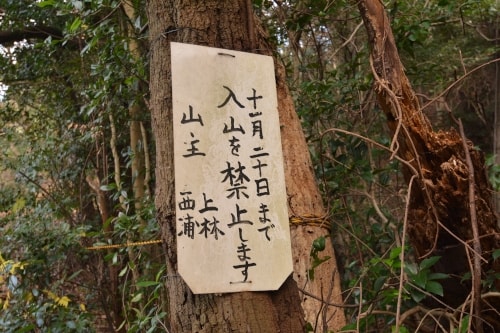 十一月二十日まで
入山を禁止します
山主 上林
西浦